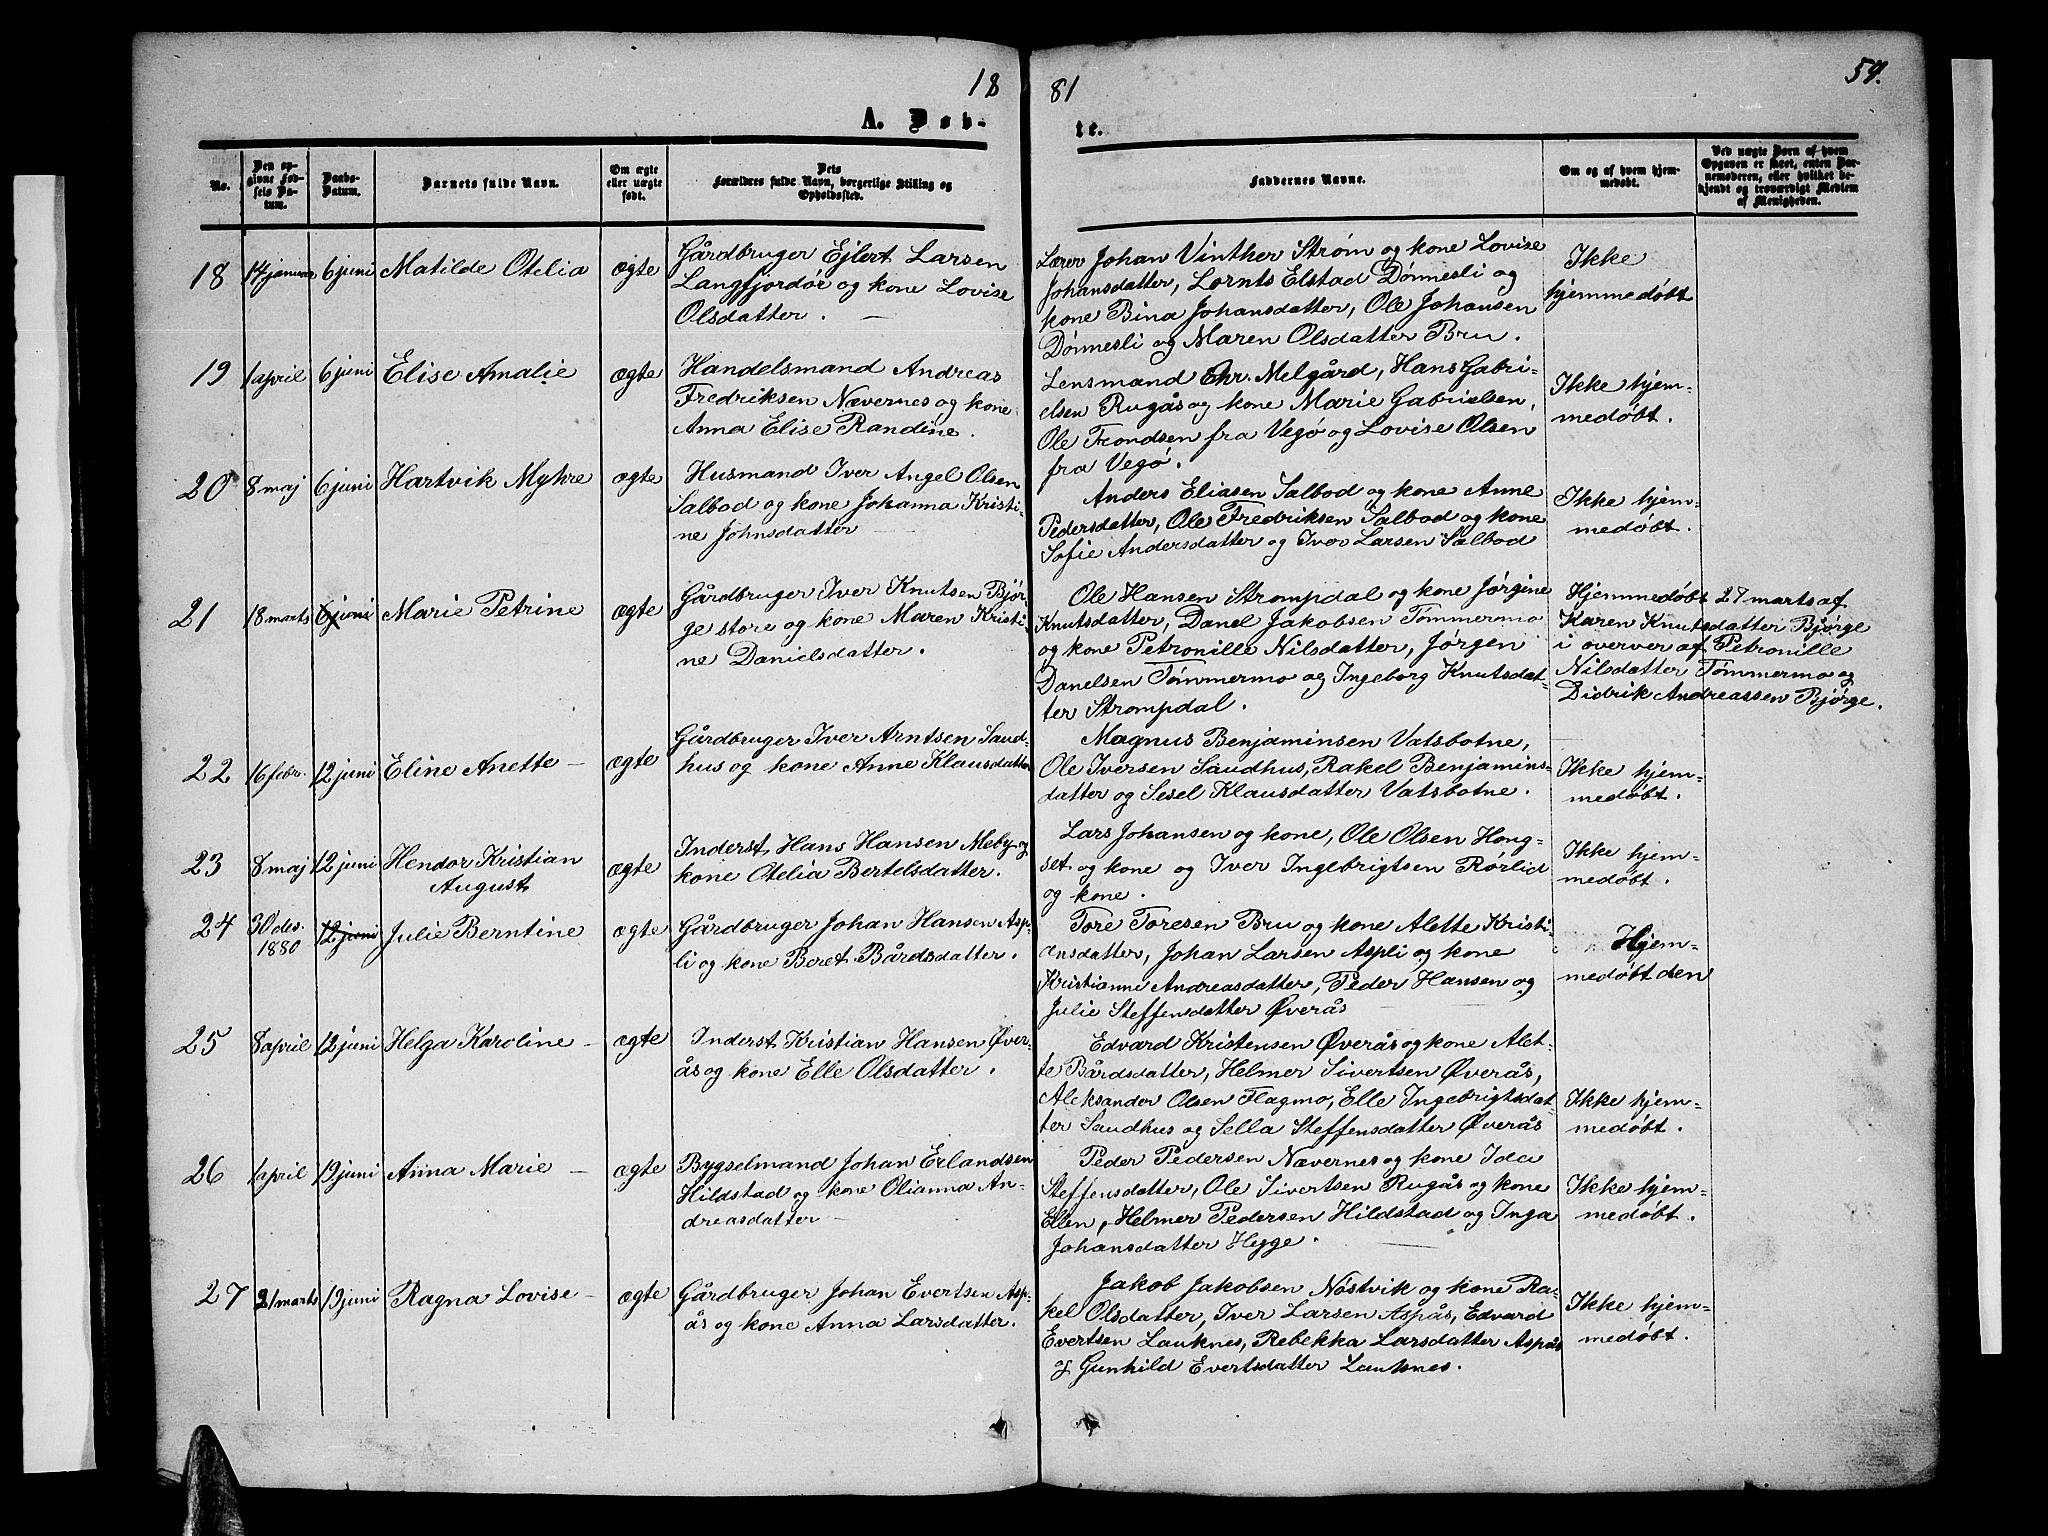 18
81
54.
A. Døb-
te.
No.
Den op-
givne Fød-
sels Da-
tum.
Daabs-
Datum.
Barnets fulde Navn.
Om ægte
eller uægte
født.
Dets
Forældres fulde Navn, borgerlige Stilling og
Opholdssted.
Faddernes Navne.
Om og af hvem hjem-
medøbt.
Ved uægte Børn af hvem
Opgaven er skeet, enten Bar-
nemoderen, eller hvilket be-
kjendt og troværdigt Medlem
af Menigheden.
18
14 januar
6 juni
Matilde Otelia
ægte
Gårdbruger Ejlert Larsen
Langfjordør og kone Lovise
Olsdatter.
Lærer Johan Vinther Strøm og kone Lovise
Johansdatter, Lornts Elstad Dønnesli og
kone Bina Johansdatter, Ole Johansen
Dønnesli og Maren Olsdatter Bru.
Ikke
hjemmedøbt
19
1 april
6 juni
Elise Amalie
ægte
Handelsmand Andreas
Fredriksen Nævernes og kone
Anna Elise Randine.
Lensmand Chr. Melgård, Hans Gabri-
elsen Rugås og kone Marie Gabrielsen,
Ole Trondsen fra Vegø og Lovise Olsen
fra Vegø.
Ikke hjem-
medøbt.
20
8 maj
6 juni
Hartvik Myhre
ægte
Husmand Iver Angel Olsen
Salbod og kone Johanna Kristi-
ne Johnsdatter
Anders Eliasen Salbod og kone Anne
Pedersdatter, Ole Fredriksen Salbod og kone
Sofie Andersdatter og Iver Larsen Salbod
Ikke hjem-
medøbt.
21
18 marts
6 juni
Marie Petrine
ægte
Gårdbruger Iver Knutsen Bjør-
ge store og kone Maren Kristi-
ne Danielsdatter.
Ole Hansen Strompdal og kone Jørgine
Knutsdatter, Danel Jakobsen Tømmermo
og kone Petronille Nilsdatter, Jørgen
Danelsen Tømmermo og Ingeborg Knutsdat-
ter Strompdal.
Hjemmedøbt 27 marts af
Karen Knutsdatter Bjørge
i overver af Petronille
Nilsdatter Tømmermo og
Didrik Andreassen Bjørge.
22
16 febr.
12 juni
Eline Anette
ægte
Gårdbruger Iver Arntsen Saud-
hus og kone Anne Klausdatter
Magnus Benjaminsen Vatsbotne,
Ole Iversen Saudhus, Rakel Benjamins-
datter og Sesel Klausdatter Vatsbotne.
Ikke hjem-
medøbt.
23
8 maj
12 juni
Hendor Kristian
August
ægte
Inderst Hans Hansen Meby og
kone Otelia Bertelsdatter.
Lars Johansen og kone, Ole Olsen Hong-
set og kone og Iver Ingebrigtsen Rørlid
og kone.
Ikke hjem-
medøbt.
24
30 des.
1880
12 juni
Julie Berntine
ægte
Gårdbruger Johan Hansen Asp-
li og kone Beret Bårdsdatter.
Tore Toresen Bru og kone Alette Kristi-
ansdatter, Johan Larsen Aspli og kone
Kristianne Andreasdatter, Peder Hansen og
Julie Steffensdatter Øverås
Hjem-
medøbt den
25
8 april
12 juni
Helga Karoline
ægte
Inderst Kristian Hansen Øver-
ås og kone Elle Olsdatter.
Edvard Kristensen Øverås og kone Alet-
te Bårdsdatter, Helmer Sivertsen Øverås,
Aleksander Olsen Flagmo, Elle Ingebrigtsdat-
ter Saudhus og Sella Steffensdatter Øverås
Ikke hjem-
medøbt.
26
1 april
19 juni
Anna Marie
ægte
Bygselmand Johan Erlandsen
Hildstad og kone Olianna An-
dreasdatter
Peder Pedersen Nævernes og kone Ida
Steffensdatter, Ole Sivertsen Rugås og kone
Ellen, Helmer Pedersen Hildstad og Inga
Johansdatter Hegge.
Ikke hjem-
medøbt.
27
21 marts
19 juni
Ragna Lovise
ægte
Gårdbruger Johan Evertsen Asp-
ås og kone Anna Larsdatter.
Jakob Jakobsen Nøstvik og kone Ra-
kel Olsdatter, Iver Larsen Aspås, Edvard
Evertsen Lauknes, Rebekka Larsdatter Aspås
og Gunhild Evertsdatter Lauknes.
Ikke hjem-
medøbt.